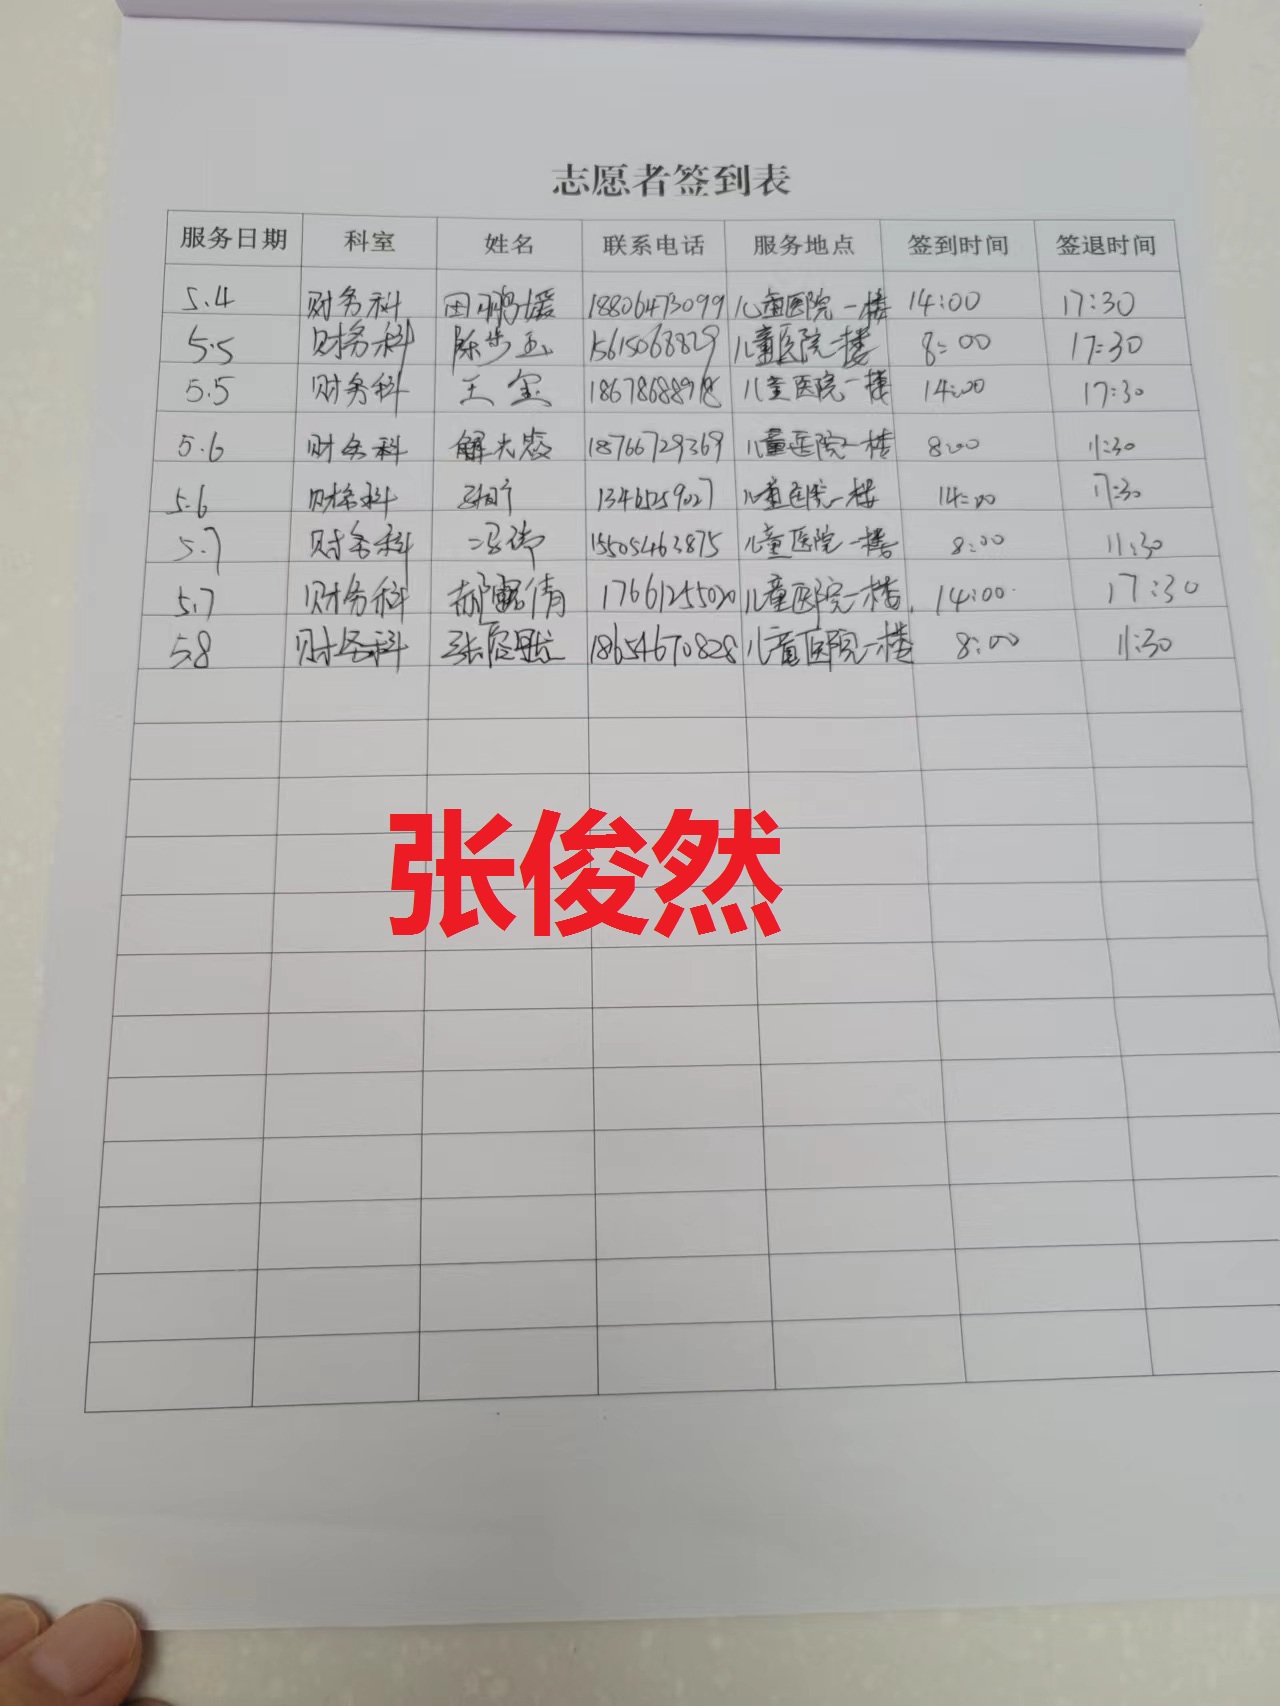 志愿者签到表
服务日期 科室 姓名 联系电话 服务地点 签到时间 签退时间
5.4 财务科 田鹏媛 18806473099 儿童医院一楼 14:00 17:30
5.5 财务科 陈步玉 15615068829 儿童医院一楼 8:00 17:30
5.5 财务科 王玺 18678688918 儿童医院一楼 14:00 17:30
5.6 财务科 18766729369 儿童医院一楼 8:00 11:30
5.6 财务科 儿童医院一楼 14:00 17:30
5.7 财务科 冯伟 15505463875 儿童医院一楼 8:00 11:30
5.7 财务科 郝露倩 17661255020 儿童医院一楼 14:00 17:30
5.8 财务科 18654670828 儿童医院一楼 8:00 11:30
张俊然